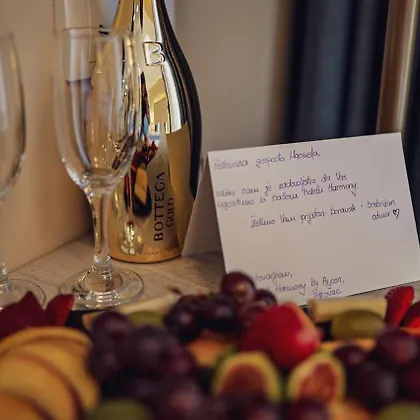 B
BOTTEGA
GOLD
Poštovana gospođo Manuela,
veliko nam je zadovoljstvo da Vas
ugostimo u našem hotelu Harmony.
Želimo Vam prijatan boravak i bezbrižan
odmor ♡
Harmony by Aycon,
Petrovac